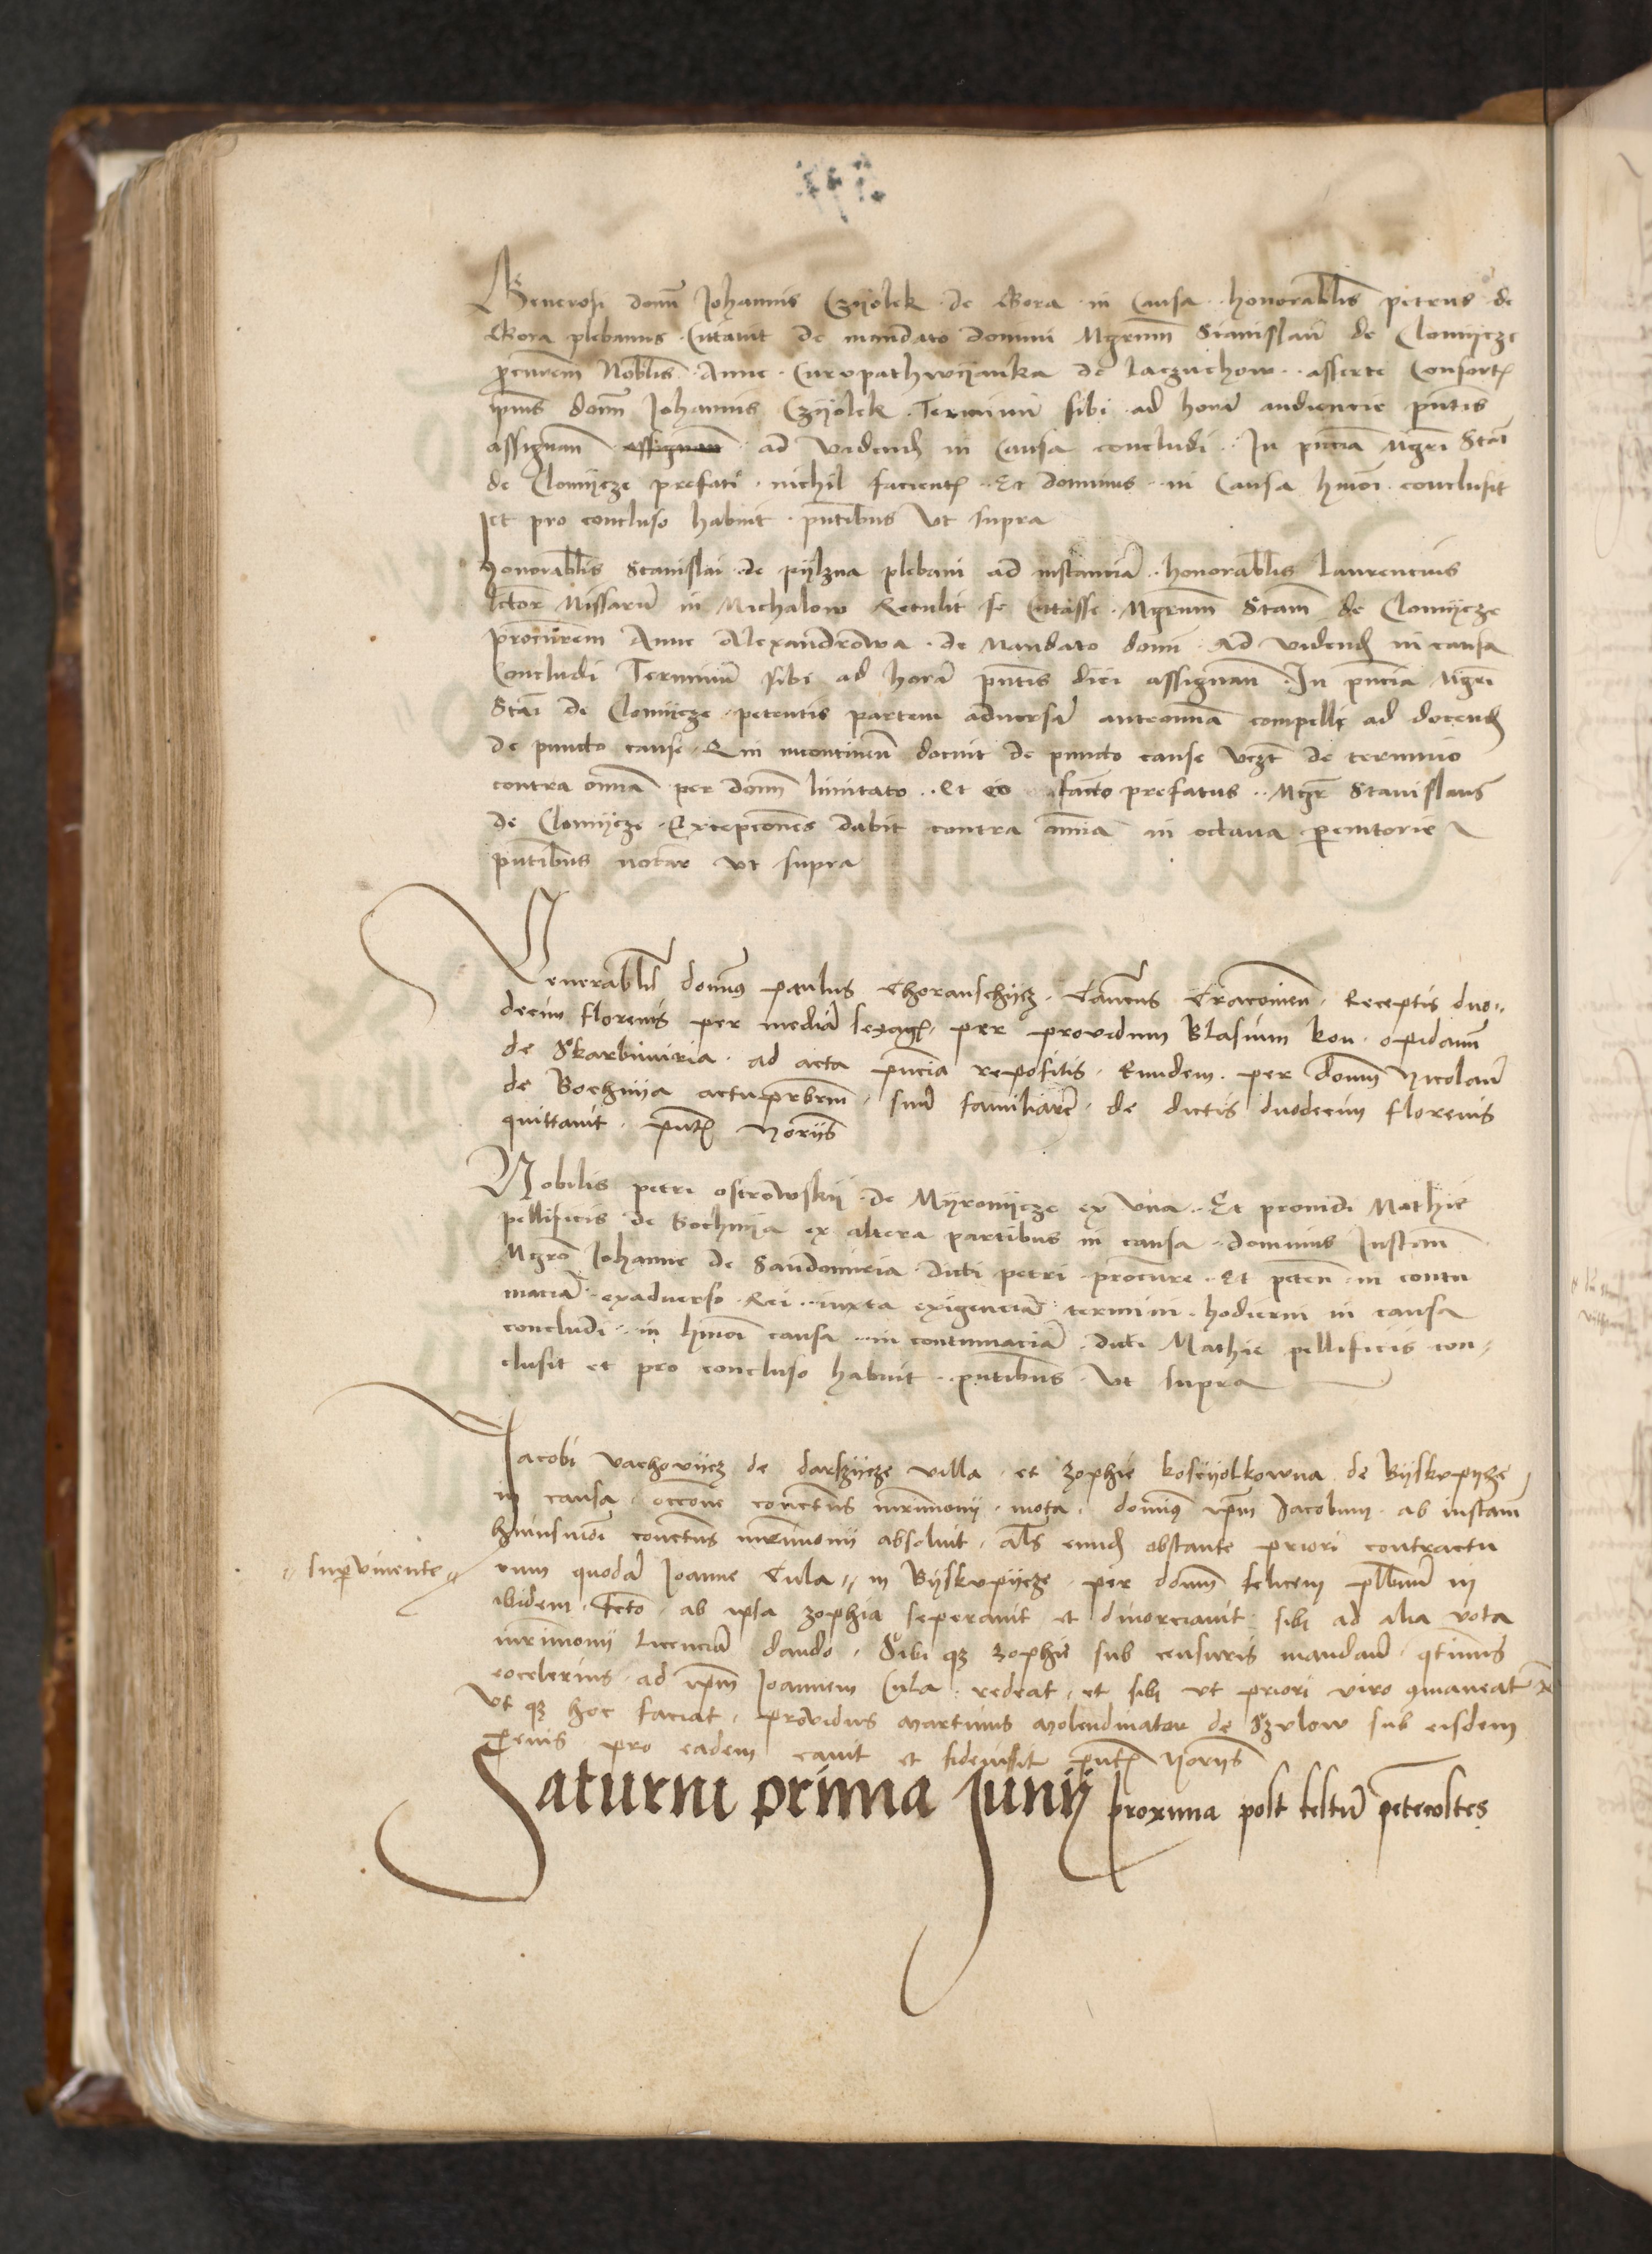 Generosi domi Johannis Czyolek de Gora in Causa honorabilis petrus de
Gora plebanus Cittavit de mandato domini Mgrum Stanislaum de Clomijcze
procurem Noblis Anne Curopathwijanka de laczuchow asserte Consortis
ipius domi Johannis Czijolek Terminum sibi ad horam audiencie pntis
assignan assignan ad videnđ in Causa concludi In pncia Mgri Stai
de Clomijcze prefati nichil facientis Et dominus in Causa hmoi conclusit
et pro concluso habuit pntibus vt supra
honorablis Stanislai de pijlzna plebani ad instanciam honorablis laurencius
lctor Missarum in Michalow Retulit se Cittasse Mgrum Stam de Clomijcze
procurem Anne Alexandrowa de Mandato domi Ad videnđ in causa
Concludi Terminum sibi ad horam pntis diei assignan In pncia Mgri
Stai de Clomijcze petentis partem adversam ante omnia compelli ad docenđ
de puncto cause Qui incontinen docuit de puncto cause vczt de termino
contra omnia per domm limitato Et eo facto prefatus Mgr Stanislaus
de Clomijcze Excepcones dabit contra omnia in octava peremtorie
pntibus notar vt supra
Venerablis domus paulus Choranschijcz Canicus Cracovien Receptis duo
decim florenis per mediam sexagđ per providum Blasium kou opidanum
de Skarbimiria ad acta pncia repositis Eundem per domm Nicolaum
de Bochnija actu prbrm suum familiarem de dictis duodecim florenis
quittavit pntę Noriis
Nobilis petri ostrowskij de Myromijcze ex vna Et providi Mathie
pellificis de Bochnija ex altera partibus in causa dominus Instan
Mgro Johanne de Sandomiria dicti petri procure Et peten in contu
maciam ex adverso Rei iuxta exigenciam termini hodierni in causa
concludi in hmoi causa in contumaciam dicti Mathie pellificis con
clusit et pro concluso habuit pntibus vt supra
Jacobi vachovijcz de darszijcze villa et zophie kosczijolkowna de Bijskupijcze
in causa occone conctus mrimonij mota domius ipm Jacobum ab instan
huiusmoi conctus mrimonij absoluit als eunđ obstante priori contractu
supervivente
cum quodam Joanne Cula in Bijskupijcze per domm felicem plbnum in
ibidem fcto ab ipsa zophia seperavit et divorciavit sibi ad alia vota
mrimonij licenciam dando Sibi qz zophie sub censuris mandavit qtinus
eocelerius ad ipm Joannem Cula redeat et sibi vt priori viro comaneat Et
Vt qz hoc faciat providus Martinus Molendinator de Szvlow sub eisdem
penis pro eadem cavit et fideiussit pntę Noriis
Saturni prima Junij proxima post festum petecostes